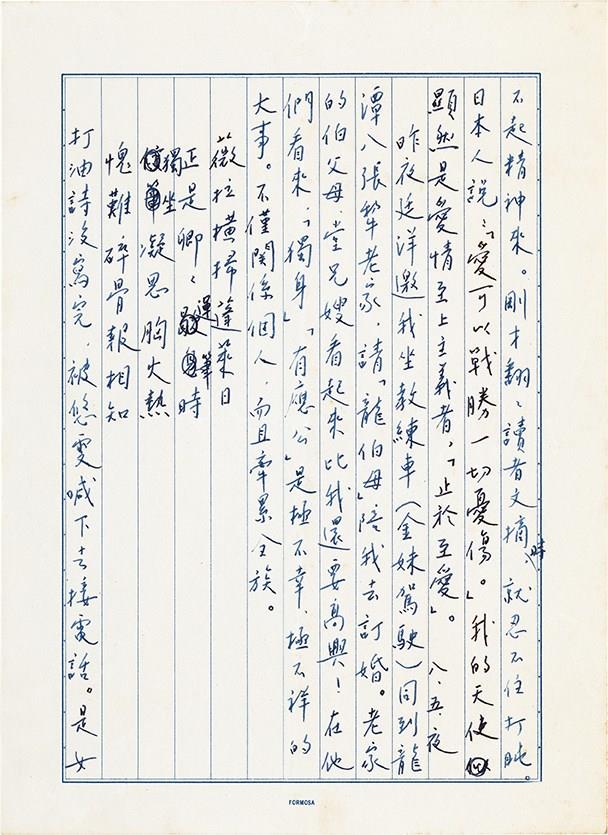 不起精神來。剛才翻〻讀者文摘時，就忍不住打盹。
日本人說：「愛可以戰勝一切憂傷。」我的天使
顯然是愛情至上主義者，「止於至愛」。 八、五、夜
昨夜廷洋邀我坐教練車（金妹駕駛）回到龍
潭八張犂老家，請「龍伯母」陪我去訂婚。老家
的伯父母、堂兄嫂看起來比我還要高興！在他
們看來，「獨身」「有應公」是極不幸、極不祥的
大事。不僅關係個人，而且牽累全族。
薇拉橫掃蓬萊日
正是卿〻運筆時
獨坐凝思胸火熱
愧難碎骨報相知
打油詩沒寫完，被悠雯喊下去接電話。是女
FORMOSA